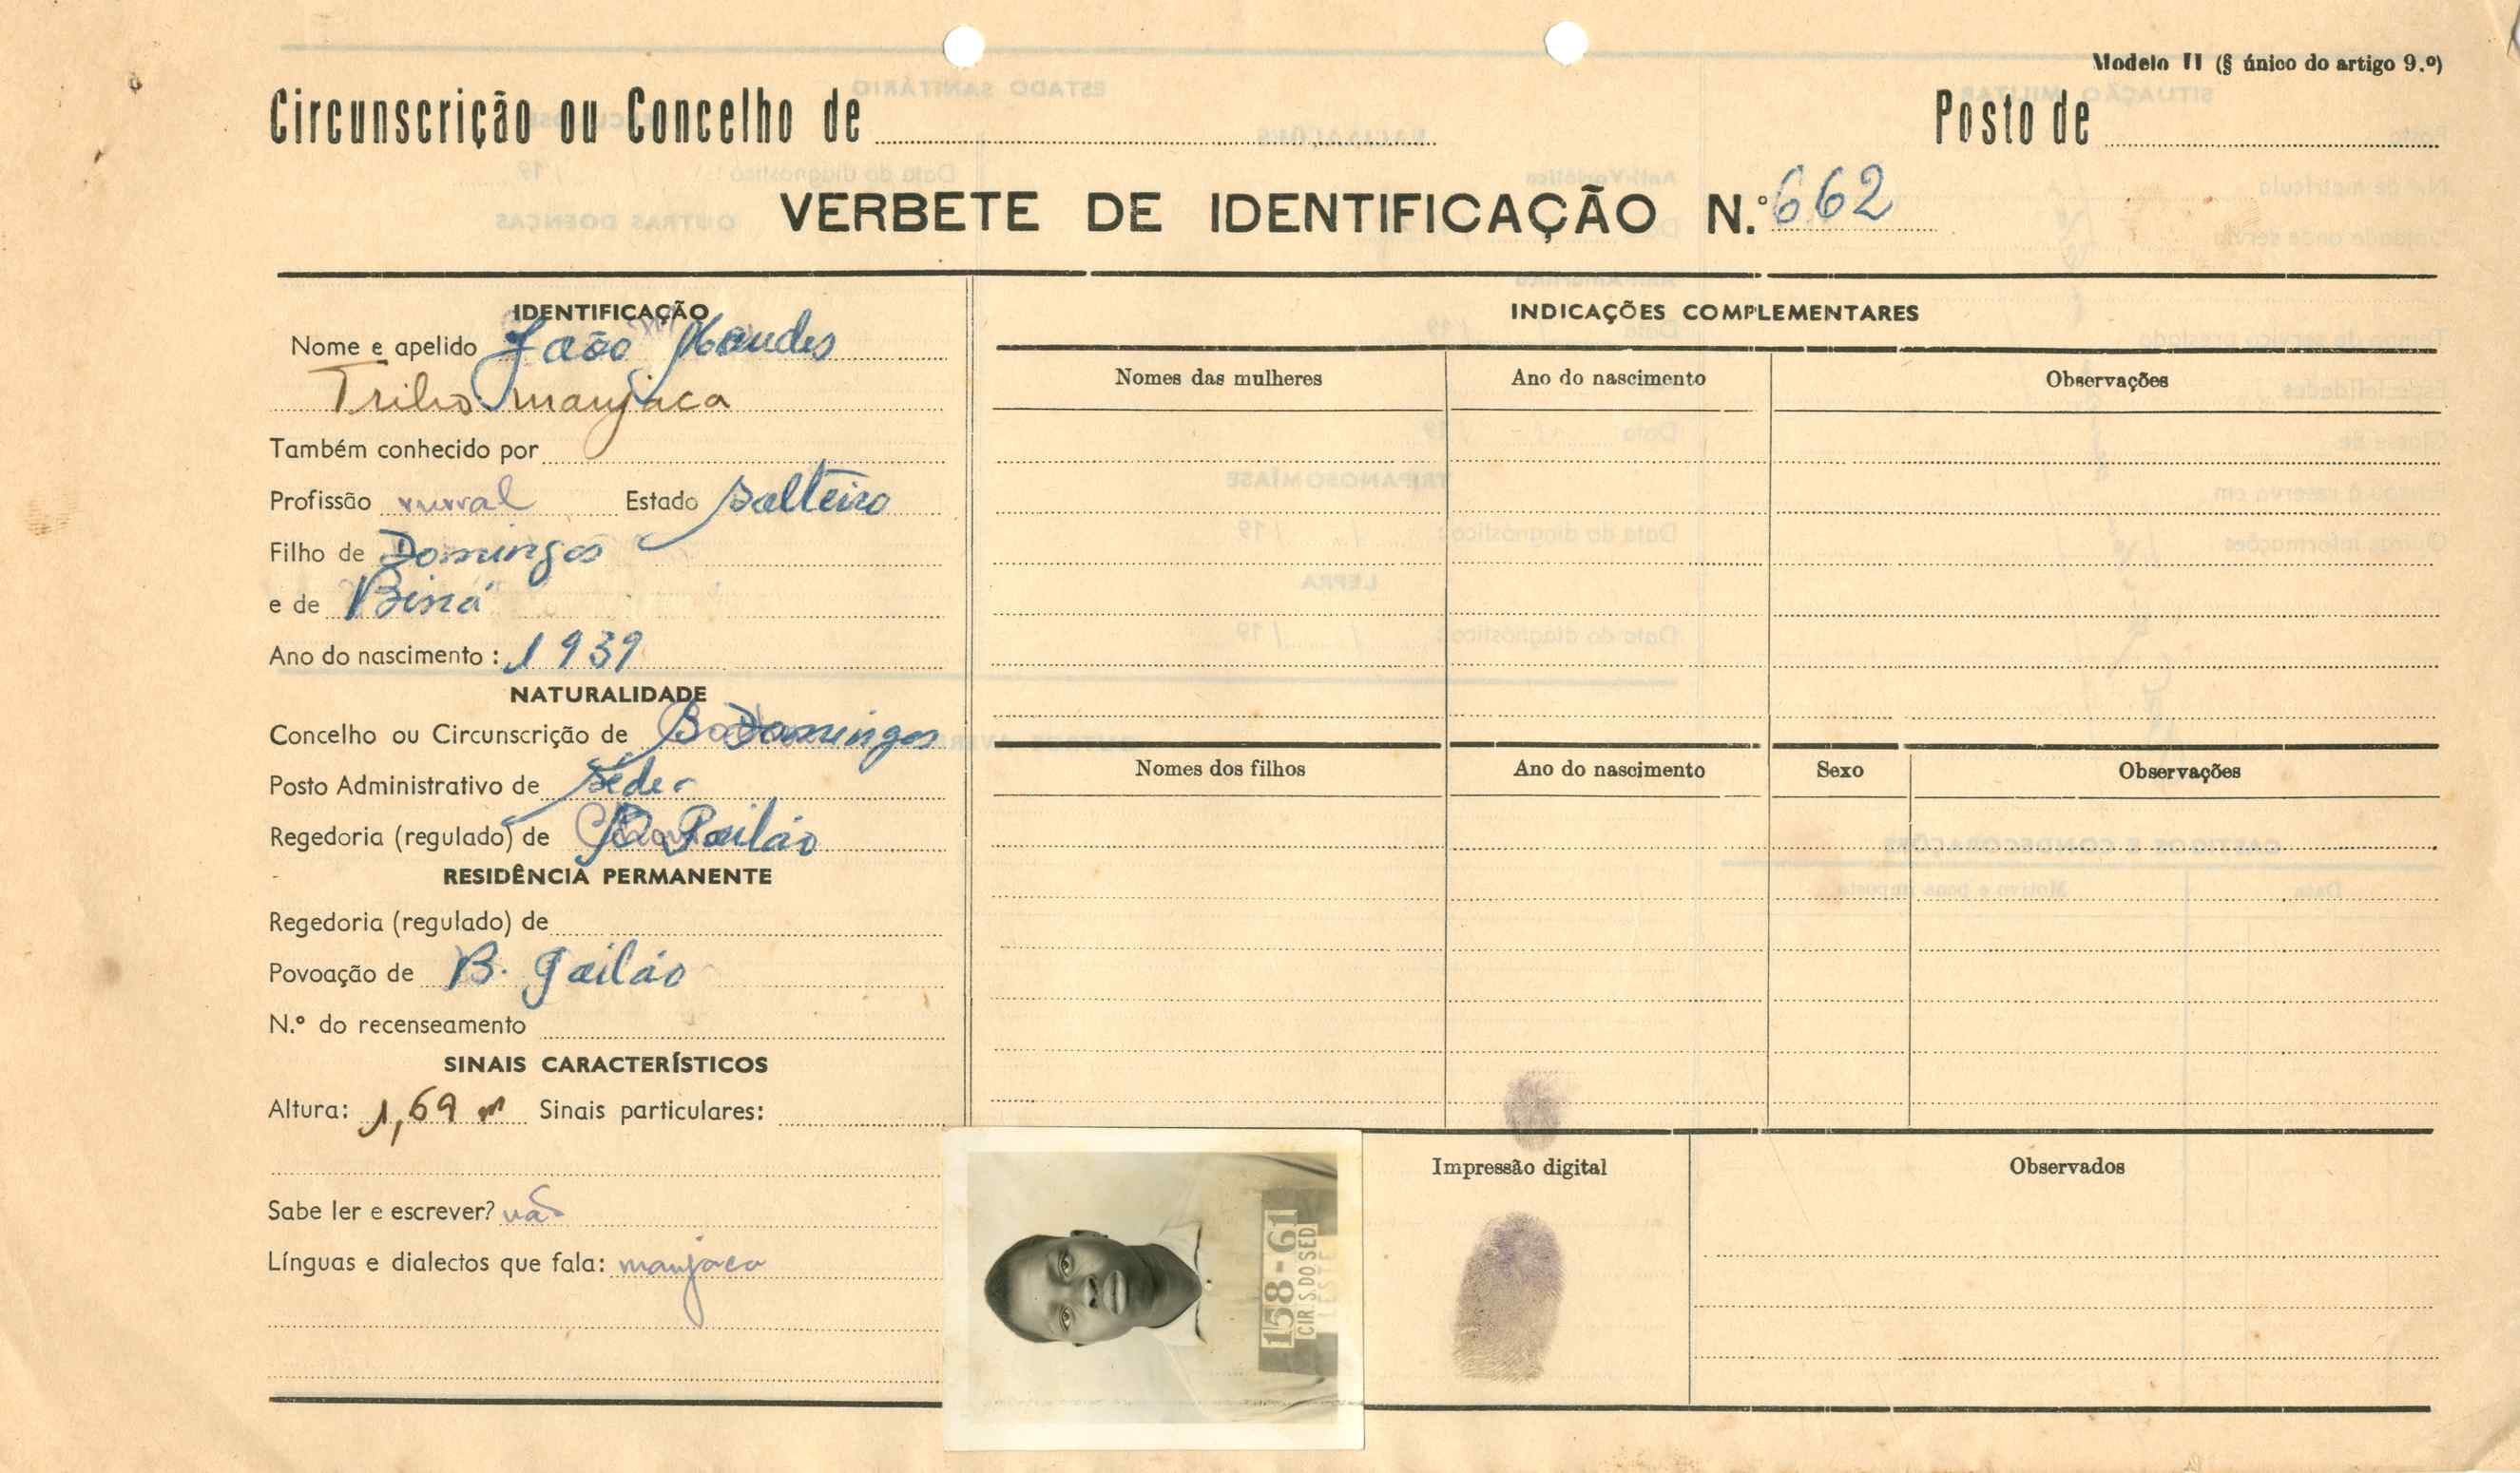 Modelo II (§ único do artigo 9.º)
Circunscrição ou Concelho de
Posto de
VERBETE DE IDENTIFICAÇÃO N.º 662
IDENTIFICAÇÃO
Nome e apelido João Mendes
Tribo manjaca
Também conhecido por
Profissão rural Estado solteiro
Filho de Domingos
e de Biná
Ano do nascimento: 1939
NATURALIDADE
Concelho ou Circunscrição de S. Domingos
Posto Administrativo de Sede
Regedoria (regulado) de
RESIDÊNCIA PERMANENTE
Regedoria (regulado) de
Povoação de B. Gailão
N.º do recenseamento
SINAIS CARACTERÍSTICOS
Altura: 1,69 m Sinais particulares:
Sabe ler e escrever? não
Línguas e dialectos que fala: manjaca
INDICAÇÕES COMPLEMENTARES
Nomes das mulheres
Ano do nascimento
Observações
Nomes dos filhos
Ano do nascimento
Sexo
Observações
158-61
CIR.S.DO SED
LESTE
Impressão digital
Observados